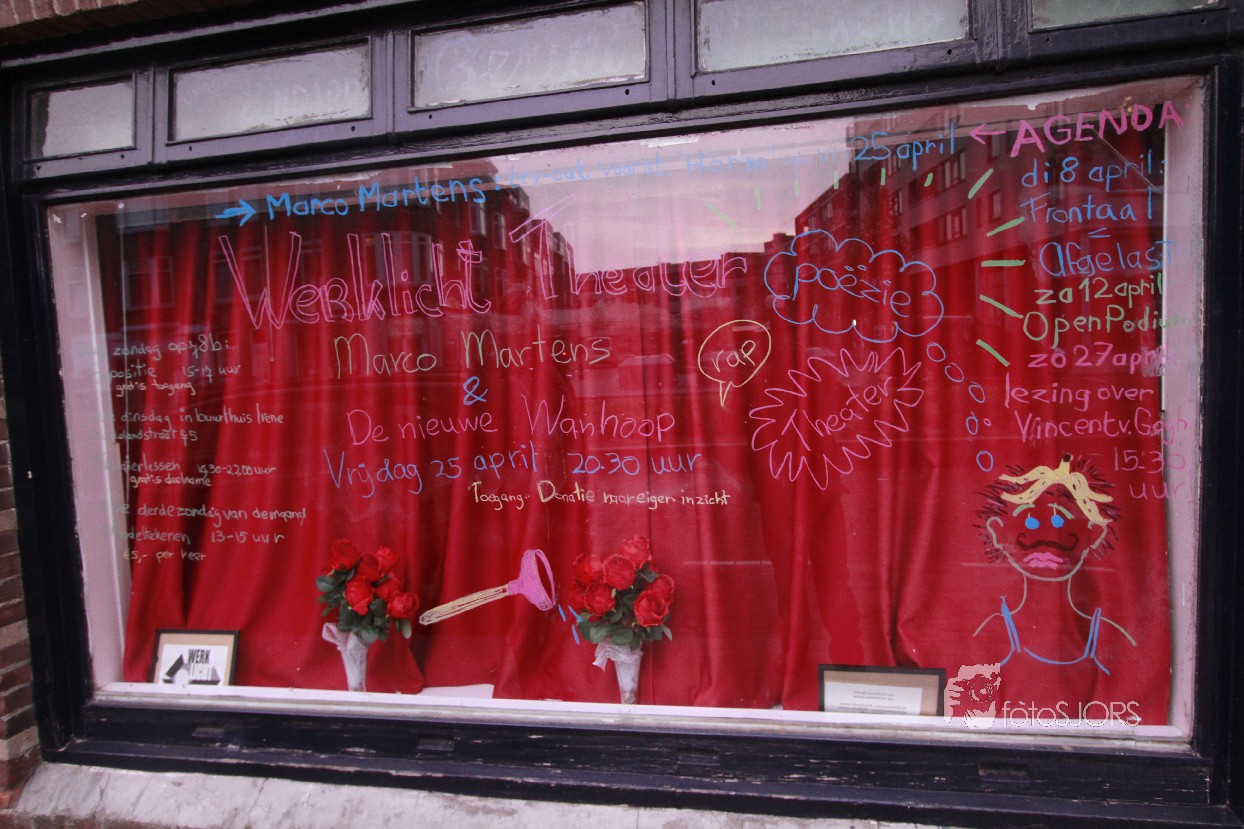 Marco Martens
25 april
WeRklicht Theater
Marco Martens
&
De nieuwe Wanhoop
Vrijdag 25 april 20.30 uur
Toegang: Donatie naar eigen inzicht
poëzie
rap
Theater
← AGENDA
di 8 april:
Frontaal
Afgelast
za 12 april
Open Podium
zo 27 april
lezing over
Vincent v. Gogh
15:30
uur
zondag
15-17 uur
gratis toegang
dinsdag in buurthuis Irene
45
lessen 19.30-22.00 uur
gratis deelname
derde zondag van de maand
modeltekenen 13-15 uur
€5,- per keer
WERK
LICHT
fotoSJORS